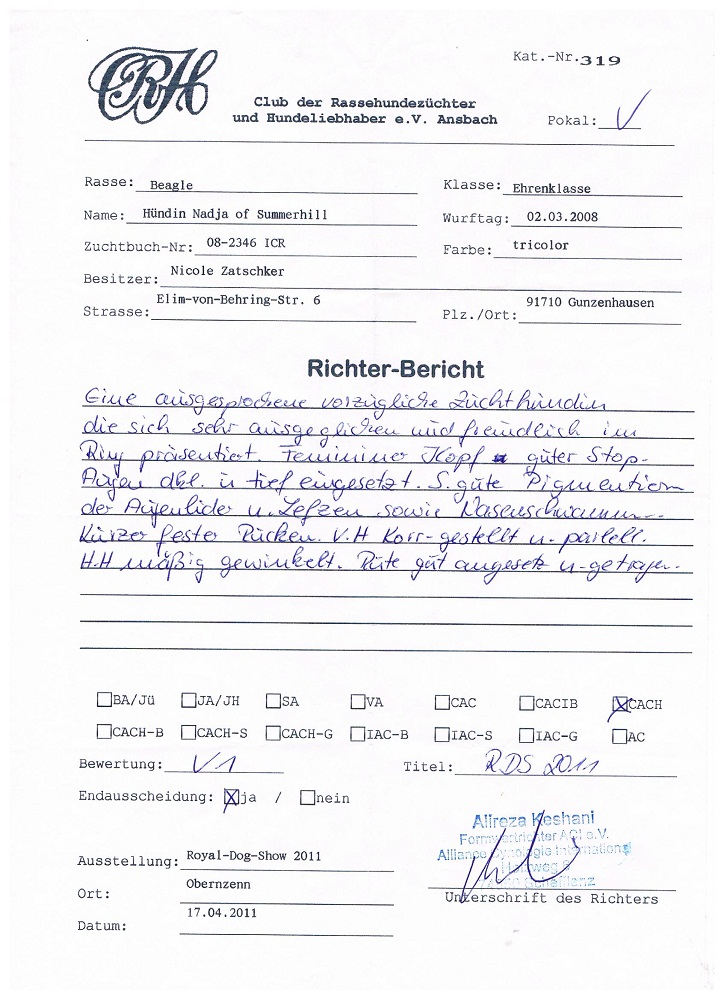 CRH
Kat.-Nr.319
Club der Rassehundezüchter
und Hundeliebhaber e.V. Ansbach
Pokal: V
Rasse: Beagle
Klasse: Ehrenklasse
Name: Hündin Nadja of Summerhill
Wurftag: 02.03.2008
Zuchtbuch-Nr: 08-2346 ICR
Farbe: tricolor
Besitzer: Nicole Zatschker
Strasse: Elim-von-Behring-Str. 6
Plz./Ort: 91710 Gunzenhausen
Richter-Bericht
Eine ausgesprochene vorzügliche Zuchthündin
die sich sehr ausgeglichen und freundlich im
Ring präsentiert. Femininer Kopf guter Stop-
Augen dkl. u tief eingesetzt. S. gute Pigmention
der Augenlider u. Lefzen sowie Nasenschwamm.
Kurzer fester Rücken. V.H Korr-gestellt u- parlell.
H.H mäßig gewinkelt. Rute gut angesetz u-getragen.
BA/Jü JA/JH SA VA CAC CACIB CACH
CACH-B CACH-S CACH-G IAC-B IAC-S IAC-G AC
Bewertung: V1
Titel: RDS 2011
Endausscheidung: ja / nein
Alireza Keshani
Formwertrichter ACI e.V.
Alliance Cynologia International
Ausstellung: Royal-Dog-Show 2011
Ort: Obernzenn
Unterschrift des Richters
Datum: 17.04.2011